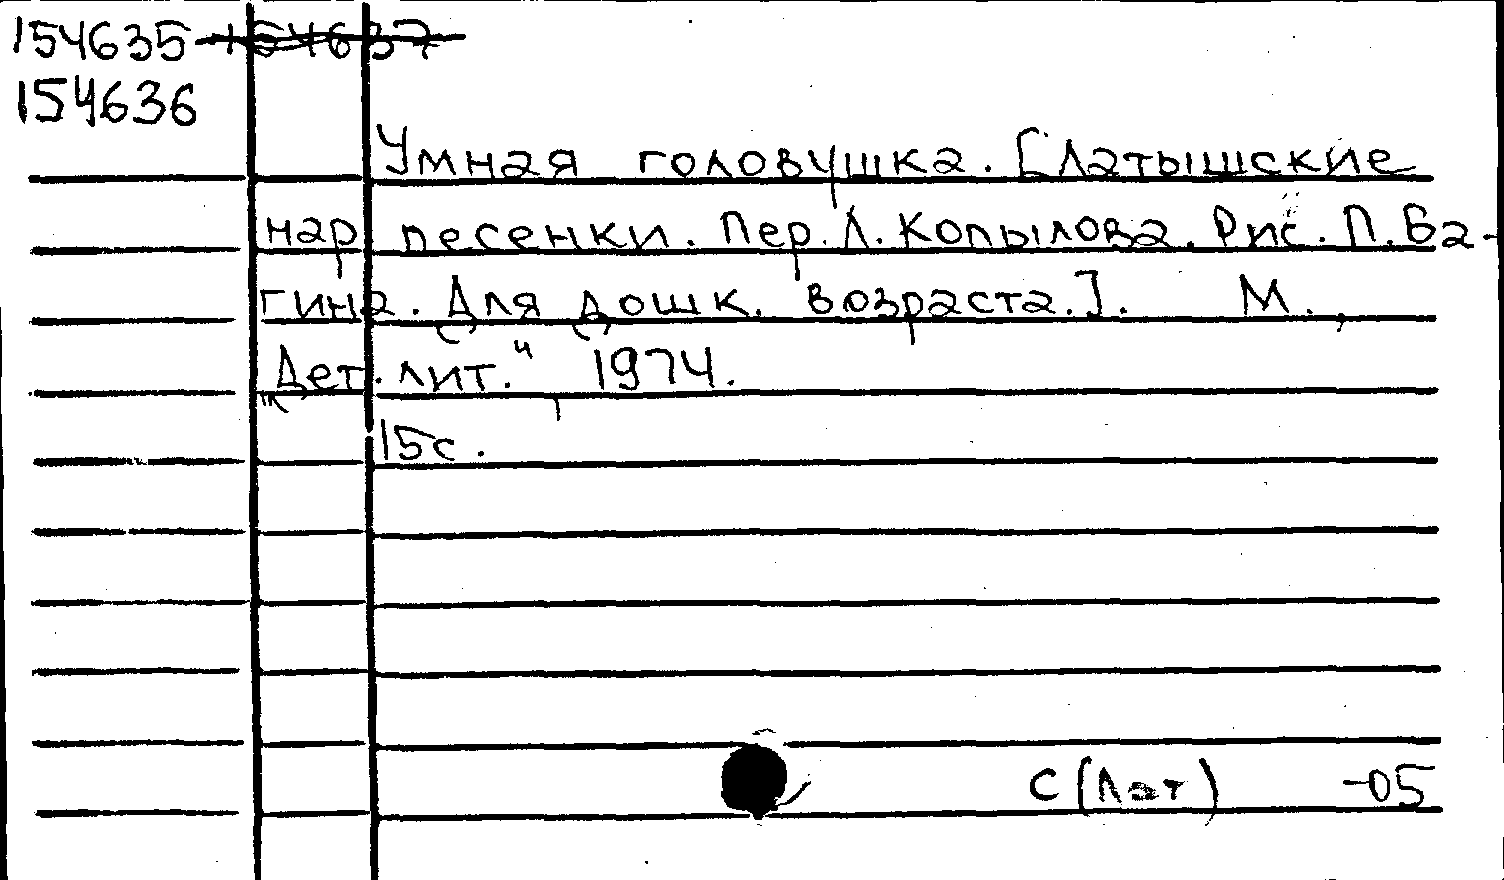 154635 154637
154636
Умная головушка. [Латышские
нар песенки. Пер. Л. Копылова. Рис. П. Ба-
гина. Для дошк. возраста.]. М.,
"Дет. лит.", 1974.
15с.
С (Лат) -05